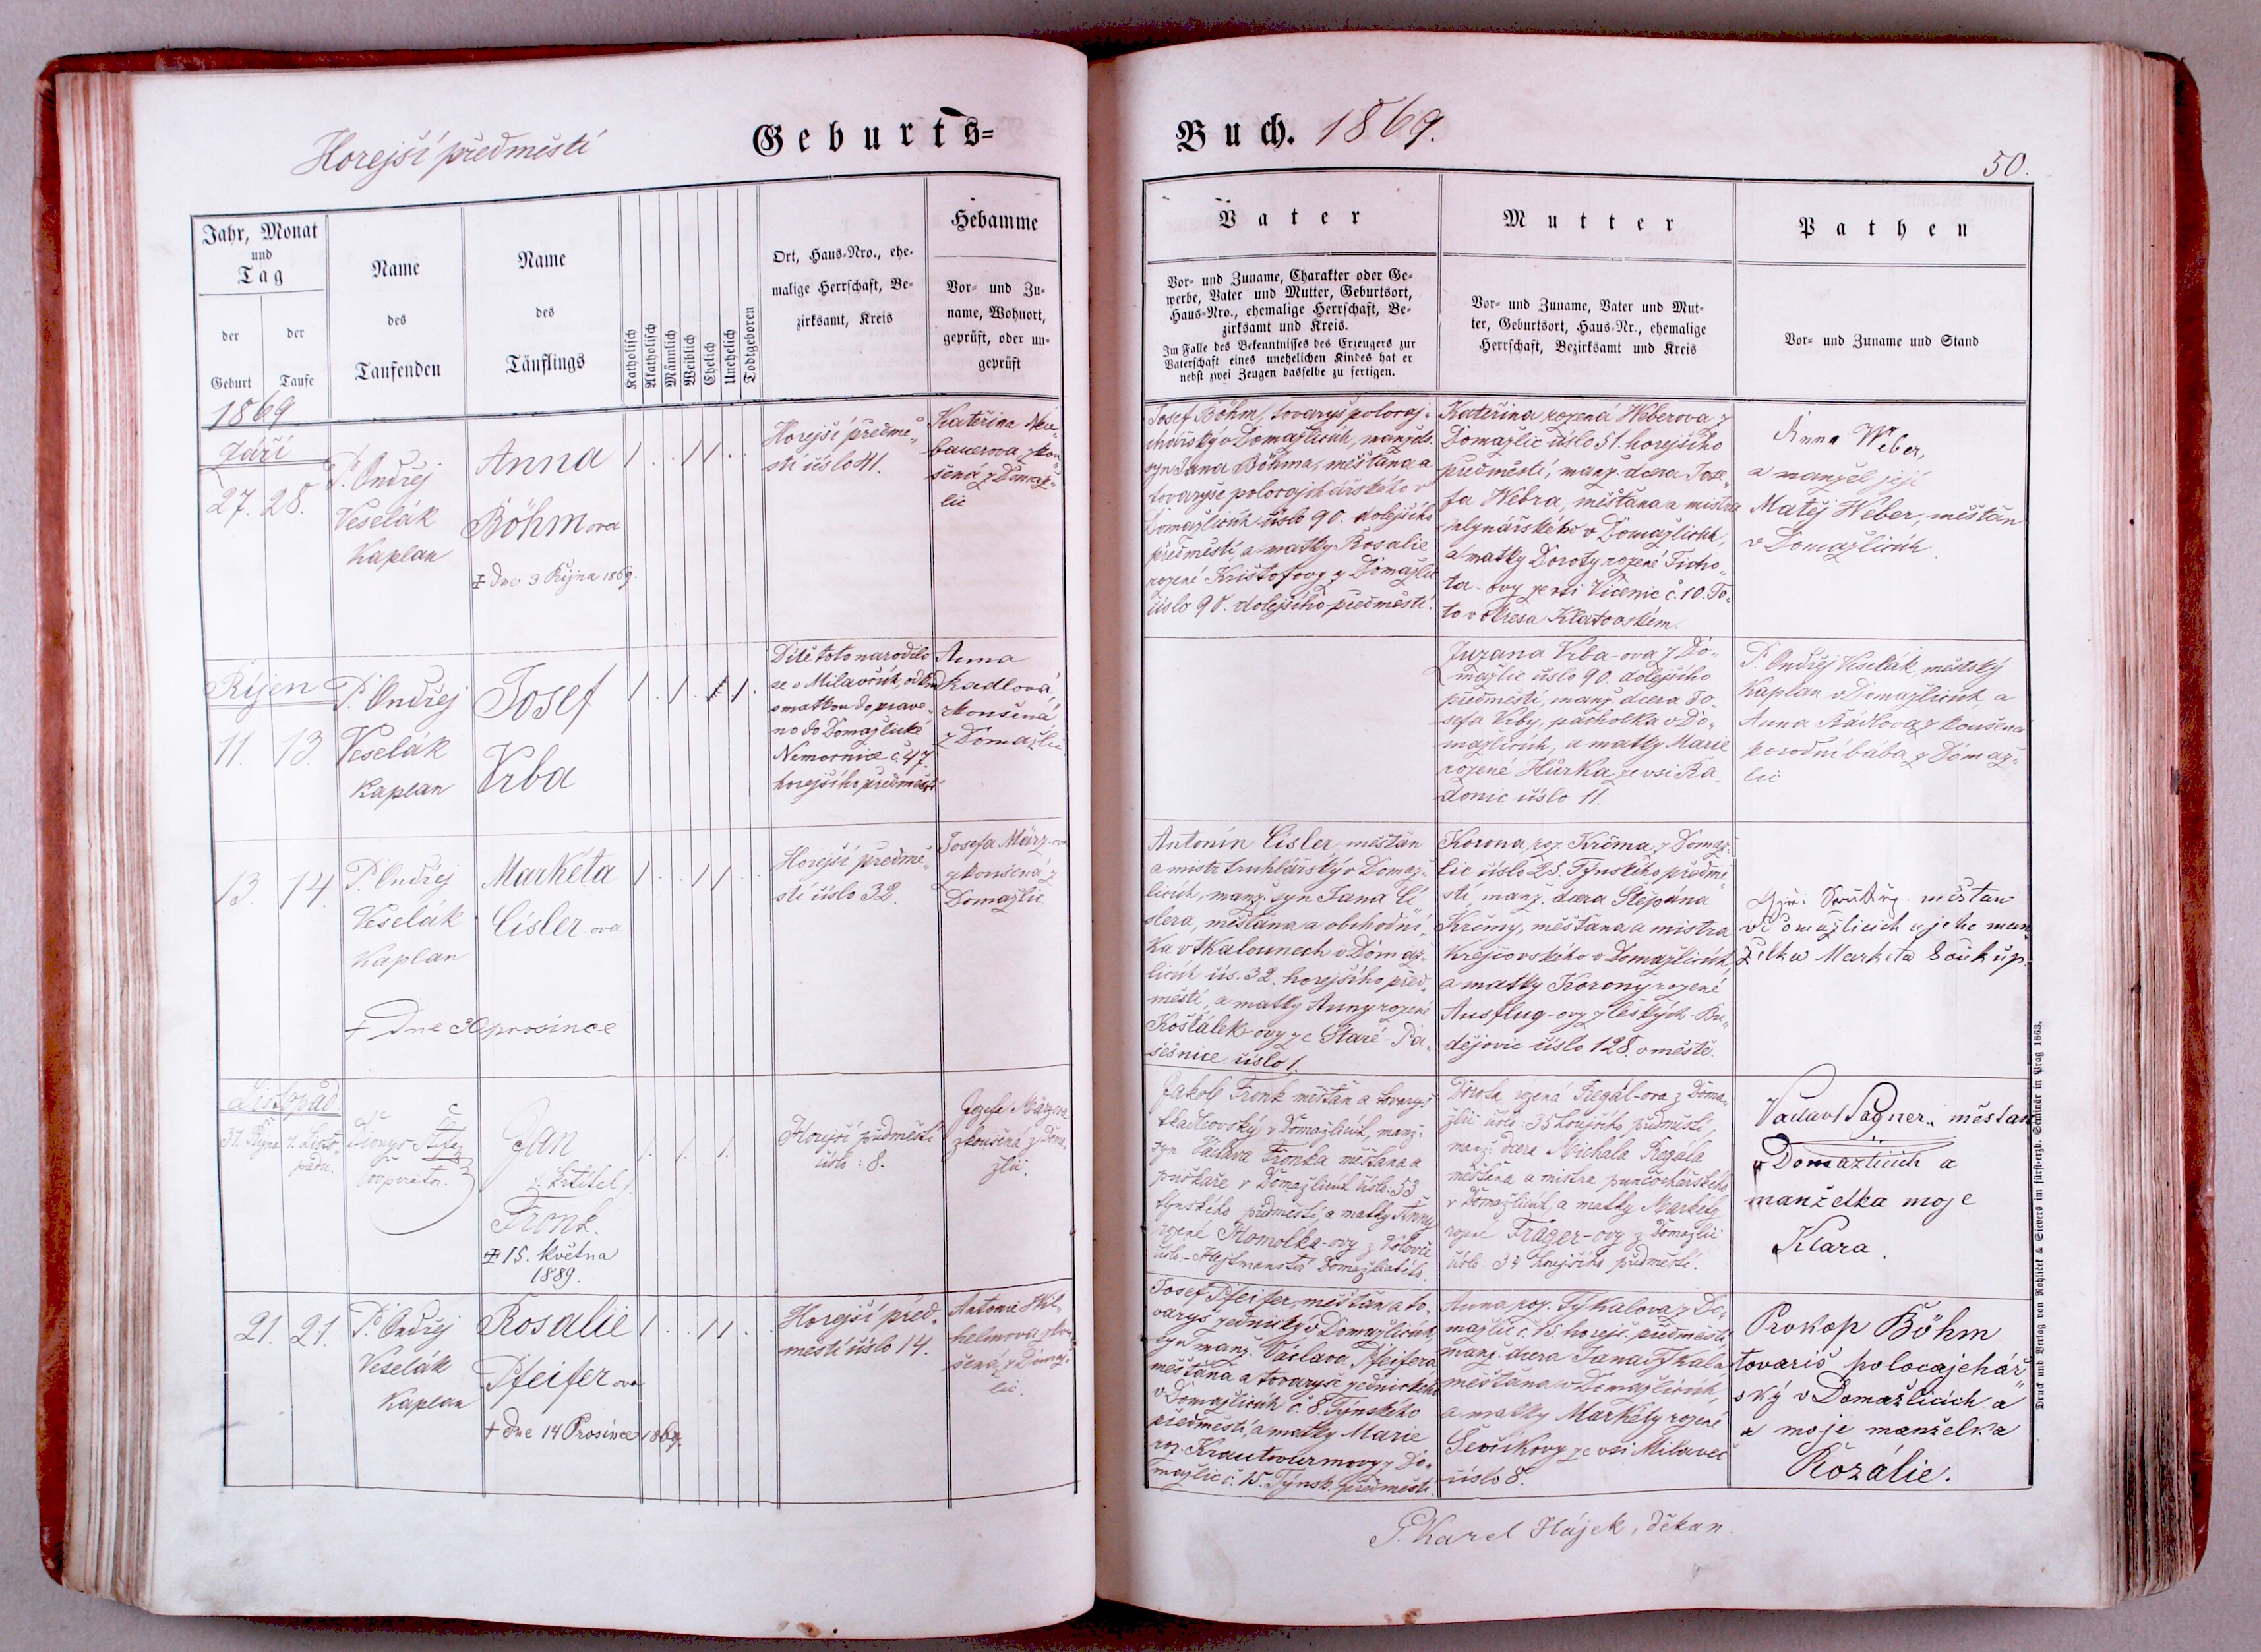 Horejší předměstí
Geburts=
Buch. 1869.
50.
Jahr, Monat
und
Tag
der
Geburt
der
Taufe
Name
des
Taufenden
Name
des
Täuflings
Katholisch
Akatholisch
Männlich
Weiblich
Ehelich
Unehelich
Todtgeboren
Ort, Haus-Nro., ehe-
malige Herrschaft, Be-
zirksamt, Kreis
Hebamme
Vor- und Zu-
name, Wohnort,
geprüft, oder un-
geprüft
Vater
Vor- und Zuname, Charakter oder Ge-
werbe, Vater und Mutter, Geburtsort,
Haus-Nro., ehemalige Herrschaft, Be-
zirksamt und Kreis.
Im Falle des Bekenntnisses des Erzeugers zur
Vaterschaft eines unehelichen Kindes hat er
nebst zwei Zeugen dasselbe zu fertigen.
Mutter
Vor- und Zuname, Vater und Mut-
ter, Geburtsort, Haus-Nr., ehemalige
Herrschaft, Bezirksamt und Kreis
Pathen
Vor- und Zuname und Stand
1869
Září
27. 28.
P. Ondřej
Veselák
Kaplan
Anna
Böhmova
Dne 3 Října 1869.
Horejší předmě„
stí číslo 41.
Kateřina Neu„
bauerova, zkou„
šená z Domaž„
lic
Josef Böhm, tovaryš poloraj„
chářský v Domažlicích, manžels.
syn Jana Böhma, měšťana a
tovaryše polorajchářského v
Domažlicích číslo 90. dolejšího
předměstí, a matky Rosalie
rozené Krištofovy z Domažlic
číslo 90. dolejšího předměstí.
Kateřina rozená Weberova z
Domažlic číslo 51. horejšího
předměstí, manž. dcera Jose„
fa Webra, měšťana a mistra
mlynářského v Domažlicích,
a matky Doroty rozené Ticho„
ta-ovy ze vsi Vícenic č. 10. To„
to v okresa Klatovském.
Anna Weber,
a manžel její
Matěj Weber, měštan
v Domažlicích.
Říjen
11. 13.
P. Ondřej
Veselák
Kaplan
Josef
Vrba
Dítě toto narodilo
se v Milavčích, odkud
s matkou doprave„
no do Domažlické
Nemocnice č. 47.
horejšího předměstí
Anna
Kadlová,
zkoušená
z Domažlic
Zuzana Vrba-ova z Do„
mažlic číslo 90. dolejšího
předměstí, manž. dcera Jo„
sefa Vrby, pacholka v Do„
mažlicích, a matky Marie
rozené Hůrka ze vsi Ra„
donic číslo 11.
P. Ondřej Veselák, městský
Kaplan v Domažlicích, a
Anna Kádlova, zkoušená
porodní bába z Domaž„
lic
13. 14.
P. Ondřej
Veselák
Kaplan
† Dne 30 prosince
Markéta
Cisler ova
Horejší předmě„
stí číslo 32.
Josefa März-ova
zkoušená z
Domažlic
Antonín Cisler, měšťan
a mistr truhlářský v Domaž„
licích, manž. syn Jana Ci„
slera, měšťana a obchodní„
ka v tkalounech v Domaž„
licích čís. 32. horejšího před„
městí, a matky Anny rozené
Košťálek-ovy ze Staré Pa„
sešnice číslo 1.
Korona, roz. Krčma z Domaž„
lic číslo 25. Týnského předmě„
stí, manž. dcera Štěpána
Krčmy, měšťana a mistra
krejčovského v Domažlicích,
a matky Korony rozené
Ausflug-ovy z Českých Bu„
dějovic číslo 128. v městě.
měštan
v Domažlicích a jeho man„
želka Marketa Soukup.
Listopad.
31. Října 4. Listo„
padu.
Dionys
Cooperator.
Jan
/: křtitel :/
Fronk.
15. května
1889.
Horejší předměstí
číslo: 8.
Josefa Märzova
zkoušená z Doma„
žlic.
Jakob Fronk měšťan a tovaryš
tkadlcovský v Domažlicích, manž:
syn Václava Fronka měšťana a
puškaře v Domažlicích číslo: 53
týnského předměstí, a matky Anny
rozené Homolka-ovy z Kolovče
číslo - Hejtmanství Domažlického.
Dorota rozená Regál-ova z Doma„
žlic číslo: 35 horejšího předměstí,
manž: dcera Michala Regála
měšťana a mistra punčochářského
v Domažlicích, a matky Markéty
rozené Fräger-ovy z Domažlic
číslo: 34 horejšího předměstí.
Vaclav Wagner, měštan
v Domazlicich a
manželka moje
Klara.
21. 21.
P. Ondřej
Veselák
Kaplan
Rosalie
Pfeifer ova
† dne 14 Prosince 1869.
Horejší před„
městí číslo 14.
Antonie Wil„
helmová, zkou„
šená z Domaž„
lic.
Josef Pfeifer, měšťan a to„
varyš zednický v Domažlicích,
syn manž. Václava Pfeifera
měšťana a tovaryše zednického
v Domažlicích č. 8. Týnského
předměstí, a matky Marie
roz. Krautwurmovy z Do„
mažlic č. 15. Týnsk. předměstí.
Anna roz. Týkalova z Do„
mažlic č. 15. horejš. předměstí,
manž. dcera Jana Týkala
měšťana v Domažlicích,
a matky Markéty rozené
Ševčíkovy ze vsi Milaveč
číslo 8.
Prokop Böhm
tovariš polocajchář„
ský v Domažlicích a
a moje manželka
Rozálie.
P. Karel Hájek, děkan.
Druck und Verlag von Rohlíček & Sievers im fürst-erzb. Seminär in Prag 1863.